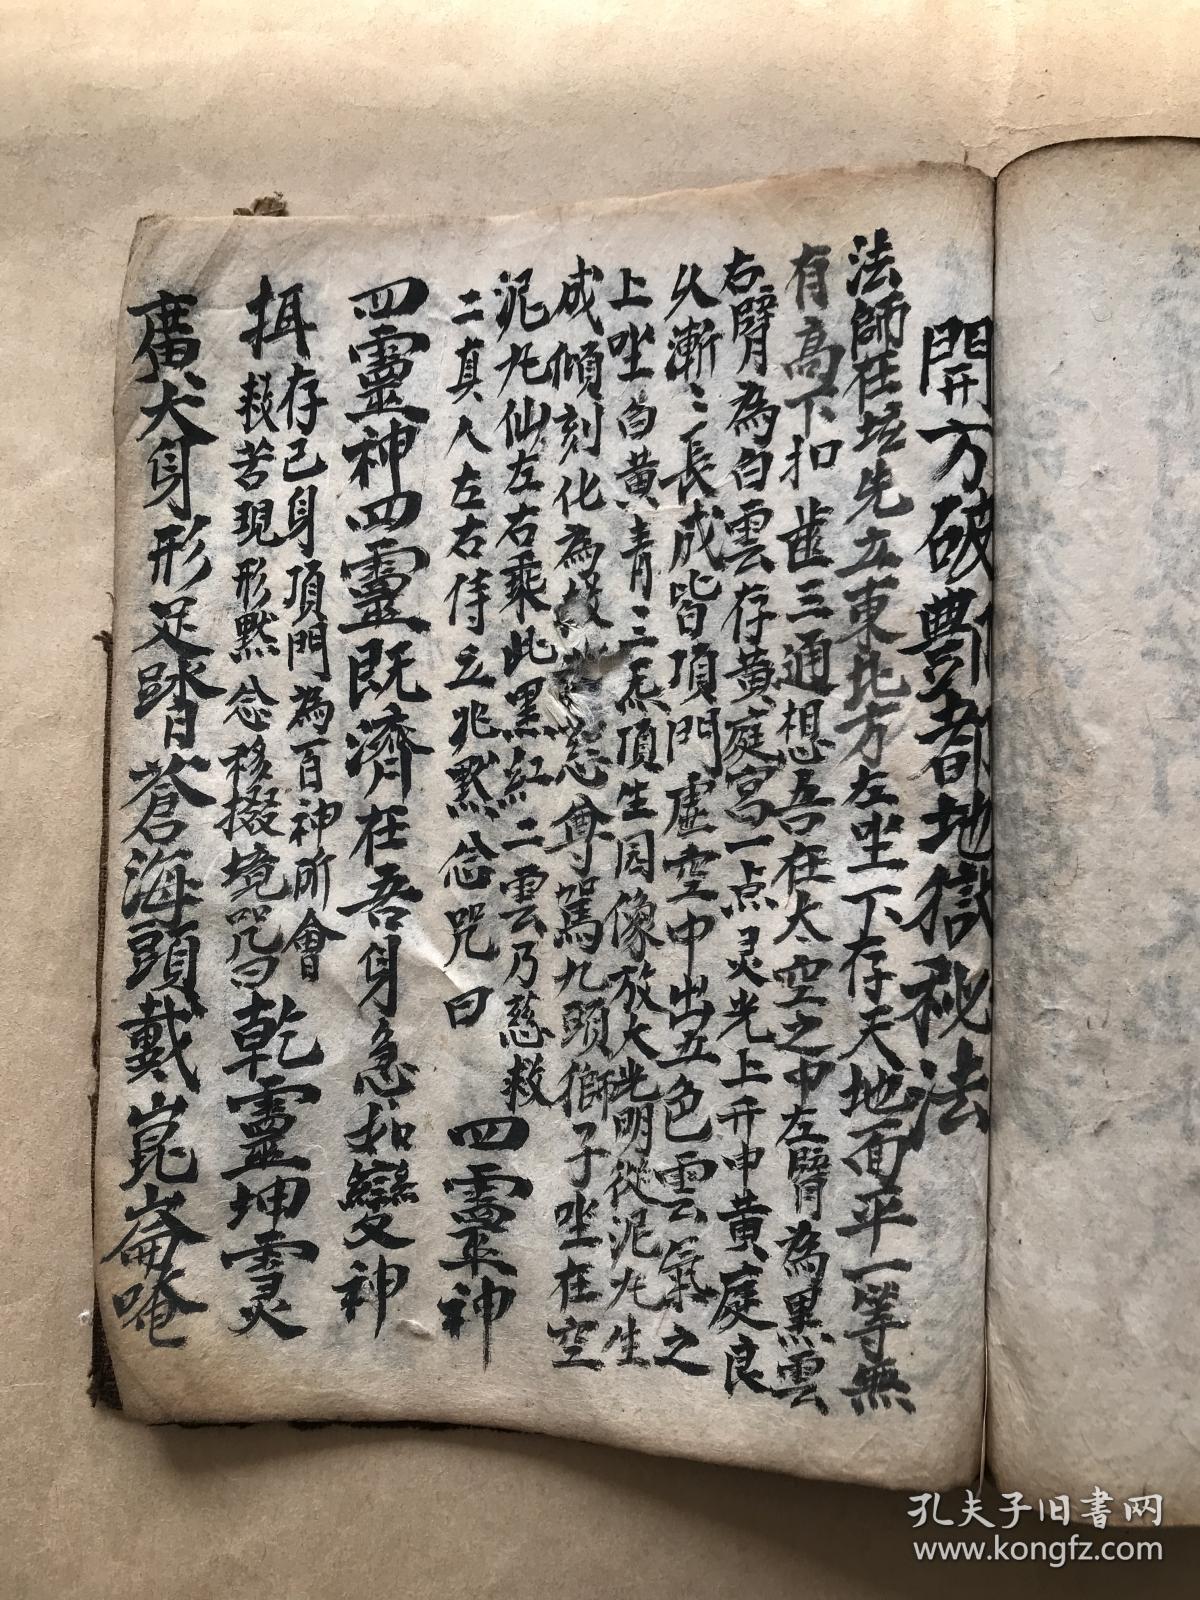 開方破酆都地獄秘法
法師在坛先立東北方左坐下存天地面平一等無
有高下扣齒三通想吾在太空之中左臂為黒雲
右臂為白雲存黄庭宮一点灵光上升中黄庭良
久漸〻長成皆項門虛空中出五色雲氣之
上坐白黄青三炁頂生园像放大光明從泥丸生
成傾刻化為 尊駕九頭獅子坐在空
泥丸仙左右乘此黑紅二雲乃慈救
二真人左右侍立兆默念咒曰 四靈神
四靈神四靈既濟在吾身急如變神
挕存己身頂門為百神所會
救苦現形默念移掇境咒曰乾靈坤灵
廣大身形足踏蒼海頭戴崑崙唵
孔夫子旧書网
www.kongfz.com